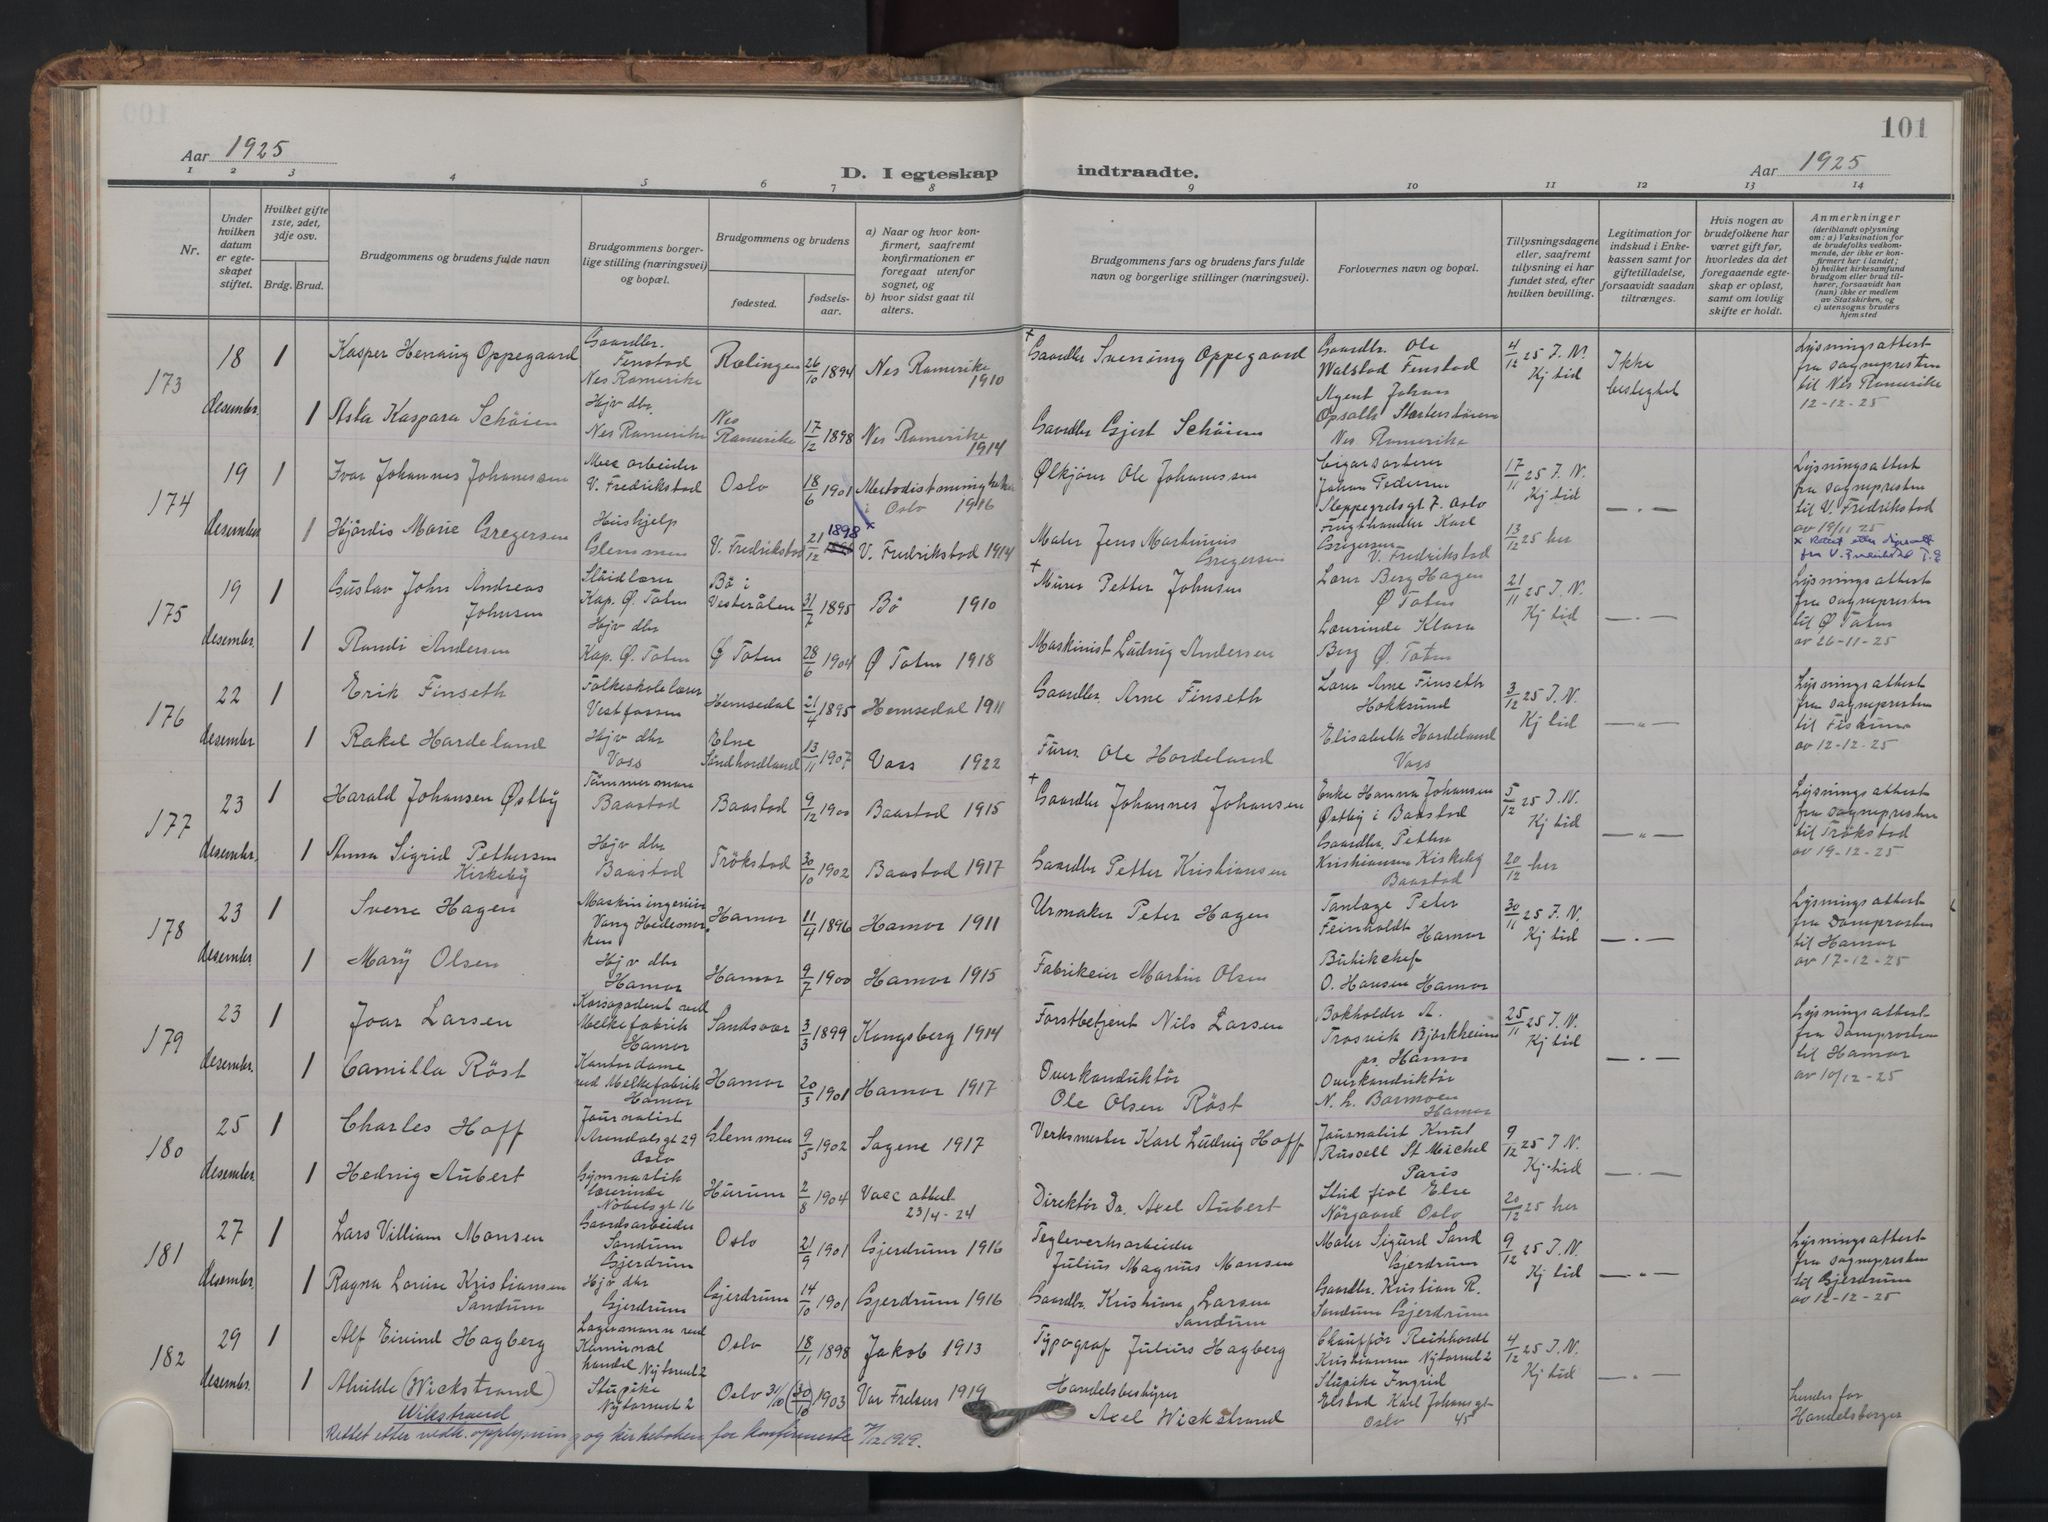 101
Aar 1925
D. I egteskap indtraadte.
Aar 1925
1 2 3 4 5 6 7 8 9 10 11 12 13 14
Nr.
Under hvilken datum er egteskapet stiftet.
Hvilket gifte 1ste, 2det, 3dje osv.
Brdg. Brud.
Brudgommens og brudens fulde navn
Brudgommens borgerlige stilling (næringsvei) og bopæl.
Brudgommens og brudens
fødested. fødselsaar.
a) Naar og hvor konfirmert, saafremt konfirmationen er foregaat utenfor sognet, og
b) hvor sidst gaat til alters.
Brudgommens fars og brudens fars fulde navn og borgerlige stillinger (næringsvei).
Forlovernes navn og bopæl.
Tillysningsdagene eller, saafremt tillysning ei har fundet sted, efter hvilken bevilling.
Legitimation for indskud i Enkekassen samt for giftetilladelse, forsaavidt saadan tiltrænges.
Hvis nogen av brudefolkene har været gift før, hvorledes da det foregaaende egteskap er opløst, samt om lovlig skifte er holdt.
Anmerkninger (deriblandt oplysning om: a) Vaksination for de brudefolks vedkommende, der ikke er konfirmert her i landet; b) hvilket kirkesamfund brudgom eller brud tilhører, forsaavidt han (hun) ikke er medlem av Statskirken, og c) utensogns bruders hjemsted
173 18 desember. 1 Kasper Henning Oppegaard Gaardbr. Finstad Nes Romerike Rælingen 26/10 1894 Nes Romerike 1910 + Gaardbr Svenning Oppegaard Gaardbr. Ole Walstad Finstad 4/12 25 J. N. Kj tid Ikke beslegtet Lysningsattest fra sognepresten til Nes Romerike 12-12-25
1 Asta Kaspara Schöien Hjv dtr. Nes Romerike Nes Romerike 17/12 1898 Nes Romerike 1914 Gaardbr Gjert Schöien Agent Johan Opsahl Nes Romerike
174 19 desember 1 Ivar Johannes Johanessen Mek arbeider V. Fredrikstad Oslo 18/6 1901 Metodistmenigheten i Oslo 1916 Ølkjörer Ole Johanessen Cigarsorterer Johan Pedersen Sloppegrdsgt 7. Oslo 17/11 25 J. N. Kj tid — „ — Lysningsattest fra sognepresten til V. Fredrikstad av 19/11 25
1 Hjördis Marie Gregersen Hushjelp Glemmen V. Fredrikstad 21/12 1898 V. Fredrikstad 1914 Maler Jens Marthinius Gregersen Frugthandler Karl Gregersen V. Fredrikstad 13/12 25 her
175 19 desember. 1 Gustav John Andreas Johnsen Slöidlærer Kap. Ø. Toten Bö i Vesterålen 31/7 1895 Bö 1910 + Murer Petter Johnsen Lærer Berg Hagen Ø Toten 21/11 25 J. N. Kj tid — „ — Lysningsattest fra sognepresten til Ø Toten av 26-11-25
1 Randi Andersen Hjv dtr Kap. Ø. Toten Ø Toten 28/6 1904 Ø Toten 1918 Maskinist Ludvig Andersen Lærerinde Klara Berg Ø. Toten
176 22 desember 1 Erik Finseth Folkeskolelærer Vestfossen Hemsedal 21/4 1895 Hemsedal 1911 Gaardbr. Arne Finseth Lærer Arne Finseth Hokksund 3/12 25 J. N. Kj tid — „ — Lysningsattest fra sognepresten til Fiskum av 12-12-25
1 Rakel Hordeland Hjv dtr Voss Elne Söndhordland 13/11 1907 Voss 1922 Ole Hordeland Elisabeth Hordeland Voss
177 23 desember. 1 Harald Johansen Østby Tömmermann Baastad Baastad 9/12 1900 Baastad 1915 + Gaardbr Johannes Johansen Enke Hanna Johansen Østby i Baastad 5/12 25 J. N. Kj tid — „ — Lysningsattest fra sognepresten til Trökstad av 19-12-25
1 Anna Sigrid Pettersen Kirkeby Hjv dtr Baastad Trökstad 30/10 1902 Baastad 1917 Gaardbr Petter Kristiansen Gaardbr. Petter Kristiansen Kirkeby Baastad 20/12 her
178 23 desember. 1 Sverre Hagen Maskiningeniör Vang Hedemarken Hamar 11/4 1896 Hamar 1911 Urmaker Peter Hagen Tanlæge Peter Feinholdt Hamar 30/11 25 J. N. Kj tid — „ — Lysningsattest fra Domprosten til Hamar av 17-12-25
1 Mary Olsen Hjv dtr Hamar Hamar 9/7 1900 Hamar 1915 Fabrikeier Martin Olsen Butikchef O. Hansen Hamar
179 23 desember. 1 Joar Larsen Korsponderent ved Melkefabrik Hamar Sandsvær 3/3 1899 Kongsberg 1914 Forstbetjent Nils Larsen Bokholder A. Trosvik Björkheim pr. Hamar 25/11 25 J. N. Kj tid — „ — Lysningsattest fra Domprosten til Hamar av 10/12-25
1 Camilla Röst Kontordame ved Melkefabrik Hamar Hamar 20/3 1901 Hamar 1917 Overkonduktör Ole Olsen Röst Overkonduktör N. L. Barmoen Hamar
180 25 desember. 1 Charles Hoff Journalist Arendalsgt 29 Oslo Glemmen 9/5 1902 Sagene 1917 Verksmester Karl Ludvig Hoff Journalist Knut Russell St Michel Paris 9/12 25 J. N. Kj. tid — „ —
1 Hedvig Aubert Gymnastik lærerinde Nobelsgt 16 Hurum 2/8 1904 Vacc attest 23/4-24 Direktör Dr. Axel Aubert Stud fiol Else Nörgaard Oslo 20/12 25 her
181 27 desember. 1 Lars Villiam Monsen Gaardsarbeider Sandum Gjerdrum Oslo 21/9 1901 Gjerdrum 1916 Teglverksarbeider Julius Magnus Monsen Maler Sigurd Sand Gjerdrum 9/12 25 J. N. Kj tid — „ — Lysningsattest fra sognepresten til Gjerdrum av 12-12-25
1 Ragna Lovise Kristiansen Sandum Hjv dtr Gjerdrum Gjerdrum 14/10 1901 Gjerdrum 1916 Gaardbr. Kristian Larsen Sandum Gaardbr. Kristian R. Sandum Gjerdrum
182 29 desember. 1 Alf Eivind Hagberg Lagermann ved Kommunal handel Nytorvet 2 Oslo 18/11 1898 Jakob 1913 Typograf Julius Hagberg Chafför Reinhardt Kristiansen Nytorvet 2 4/12 25 J. N. Kj tid — „ —
1 (Wickstrand) Wikstrand Stupike Nytorvet 2 Oslo 31/10 (30/10) 1903 Vor Frelsers 1919 Handelsbestyrer Axel Wickstrand Stupike Ingrid Elstad Karl Johansgt 45 Oslo Handelsborger
Rettet etter vedk. opplysning og kirkeboken for konfirmerte 7/12 1919.